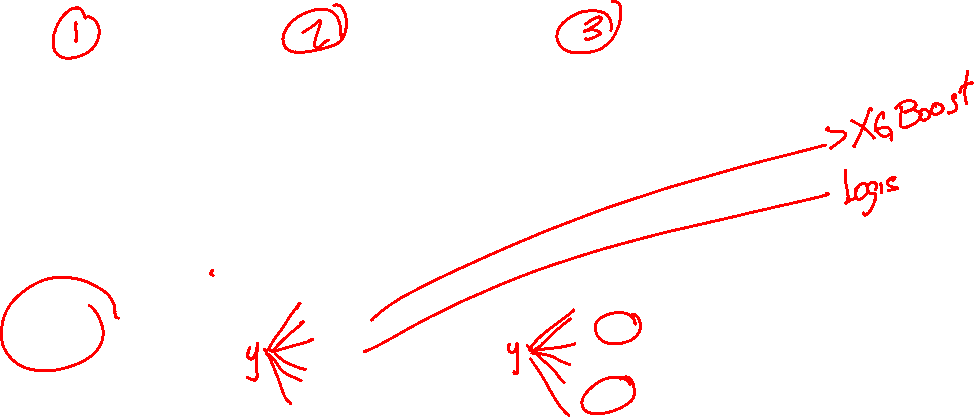 1 2 3
XGBoost
Logis
y y